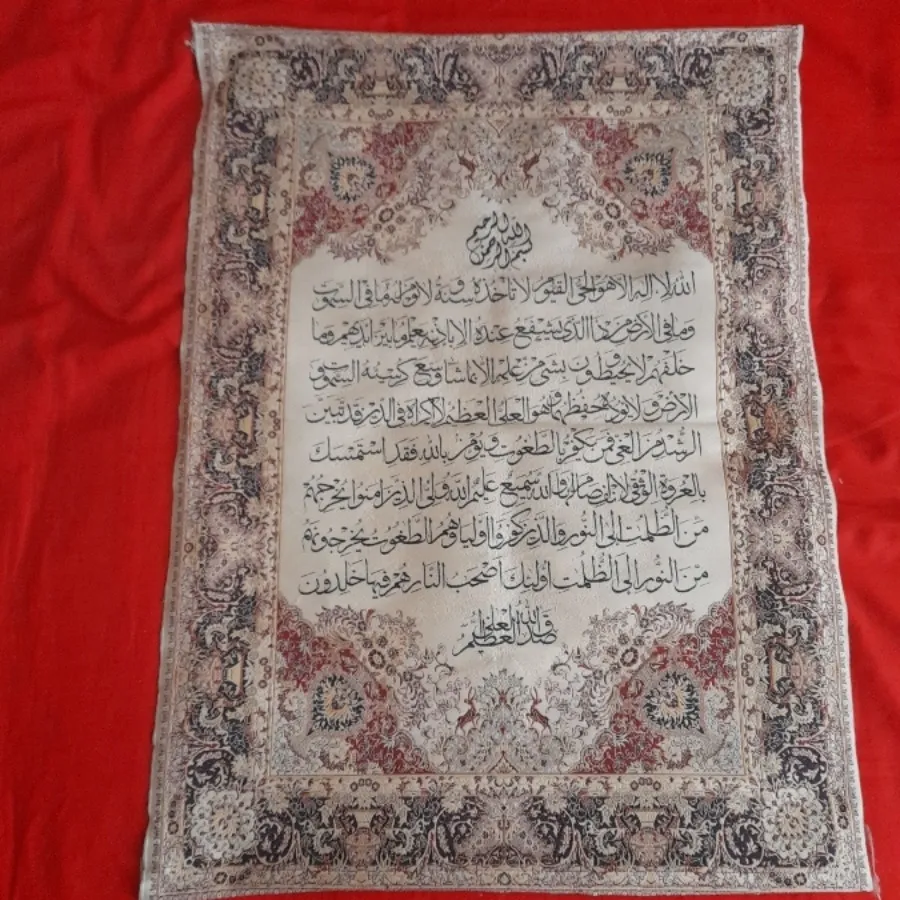 بسم الله الرحمن الرحيم
الله لا اله الا هو الحي القيوم لا تاخذه سنة ولا نوم له ما في السموت
وما في الارض من ذا الذي يشفع عنده الا باذنه يعلم ما بين ايديهم وما
خلفهم ولا يحيطون بشيء من علمه الا بما شاء وسع كرسيه السموت
والارض ولا يوده حفظهما وهو العلي العظيم لا اكراه في الدين قد تبين
الرشد من الغي فمن يكفر بالطغوت ويومن بالله فقد استمسك
بالعروة الوثقى لا انفصام لها والله سميع عليم الله ولي الذين امنوا يخرجهم
من الظلمت الى النور والذين كفروا اولياوهم الطغوت يخرجونهم
من النور الى الظلمت اولئك اصحب النار هم فيها خلدون
صدق الله العلي العظيم